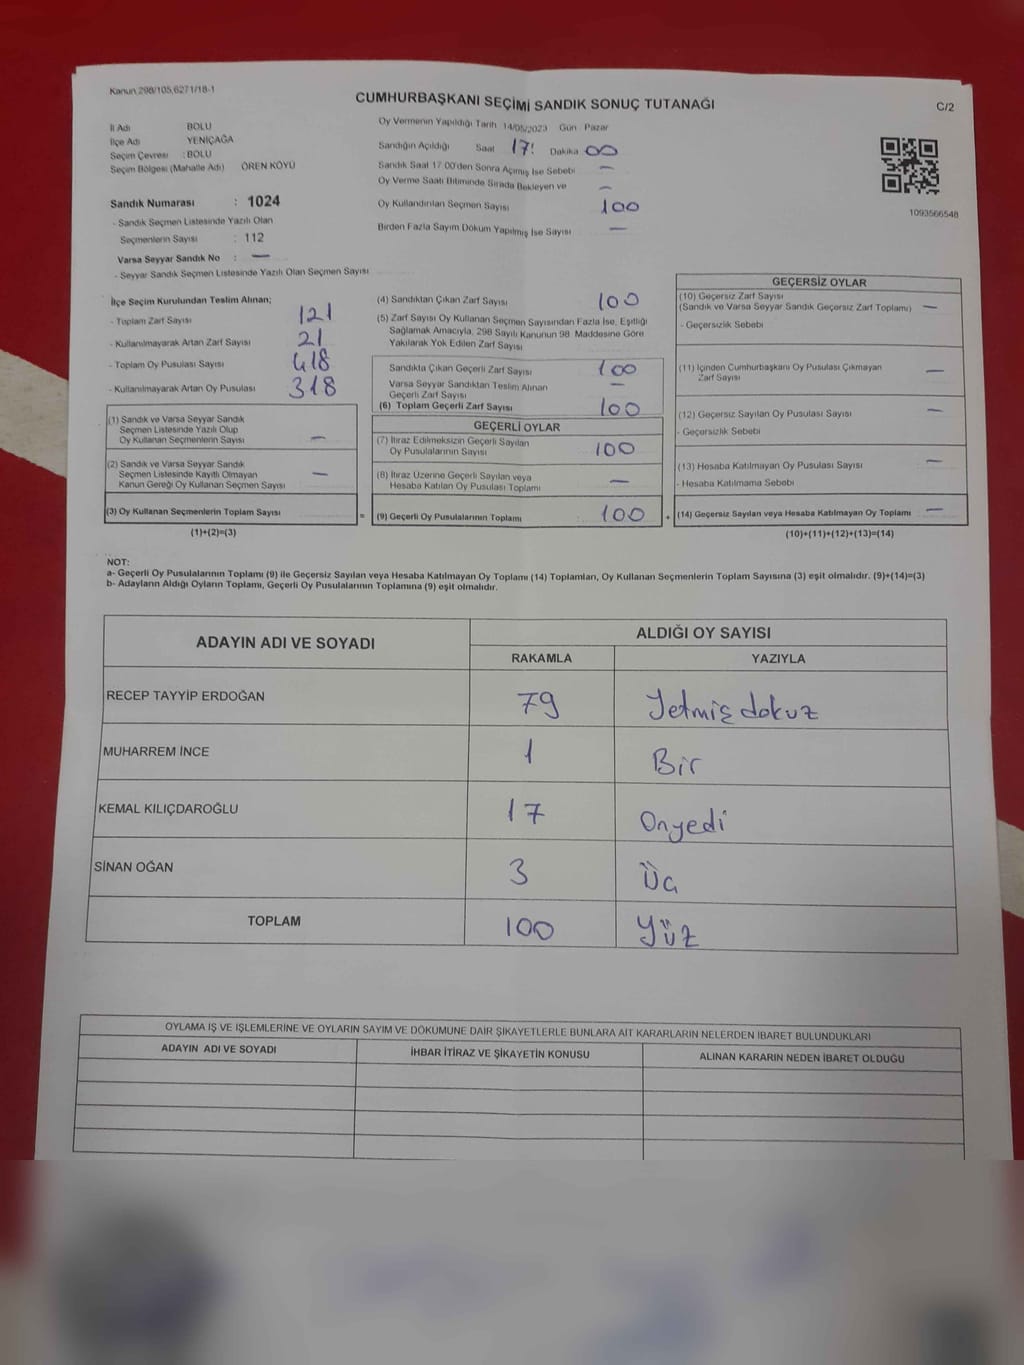 Kanun 298/105,6271/18-1
CUMHURBAŞKANI SEÇİMİ SANDIK SONUÇ TUTANAĞI
C/2
İl Adı BOLU
İlçe Adı YENİÇAĞA
Seçim Çevresi : BOLU
Seçim Bölgesi (Mahalle Adı) ÖREN KÖYÜ
Sandık Numarası : 1024
- Sandık Seçmen Listesinde Yazılı Olan
Seçmenlerin Sayısı : 112
Varsa Seyyar Sandık No : —
- Seyyar Sandık Seçmen Listesinde Yazılı Olan Seçmen Sayısı
Oy Vermenin Yapıldığı Tarih 14/05/2023 Gün Pazar
Sandığın Açıldığı Saat 17: Dakika 00
Sandık Saat 17.00'den Sonra Açımış İse Sebebi —
Oy Verme Saati Bitiminde Sırada Bekleyen ve —
Oy Kullandırılan Seçmen Sayısı 100
Birden Fazla Sayım Döküm Yapılmış İse Sayısı —
1093566548
İlçe Seçim Kurulundan Teslim Alınan;
- Toplam Zarf Sayısı 121
- Kullanılmayarak Artan Zarf Sayısı 21
- Toplam Oy Pusulası Sayısı 418
- Kullanılmayarak Artan Oy Pusulası 318
(1) Sandık ve Varsa Seyyar Sandık
Seçmen Listesinde Yazılı Olup
Oy Kullanan Seçmenlerin Sayısı —
(2) Sandık ve Varsa Seyyar Sandık
Seçmen Listesinde Kayıtlı Olmayan
Kanun Gereği Oy Kullanan Seçmen Sayısı —
(3) Oy Kullanan Seçmenlerin Toplam Sayısı
(1)+(2)=(3)
=
(4) Sandıktan Çıkan Zarf Sayısı 100
(5) Zarf Sayısı Oy Kullanan Seçmen Sayısından Fazla İse, Eşitliği
Sağlamak Amacıyla, 298 Sayılı Kanunun 98. Maddesine Göre
Yakılarak Yok Edilen Zarf Sayısı
Sandıkta Çıkan Geçerli Zarf Sayısı 100
Varsa Seyyar Sandıktan Teslim Alınan
Geçerli Zarf Sayısı —
(6) Toplam Geçerli Zarf Sayısı 100
GEÇERLİ OYLAR
(7) İtiraz Edilmeksizin Geçerli Sayılan
Oy Pusulalarının Sayısı 100
(8) İtiraz Üzerine Geçerli Sayılan veya
Hesaba Katılan Oy Pusulası Toplamı —
(9) Geçerli Oy Pusulalarının Toplamı 100
+
GEÇERSİZ OYLAR
(10) Geçersiz Zarf Sayısı
(Sandık ve Varsa Seyyar Sandık Geçersiz Zarf Toplamı) —
- Geçersizlik Sebebi
(11) İçinden Cumhurbaşkanı Oy Pusulası Çıkmayan
Zarf Sayısı —
(12) Geçersiz Sayılan Oy Pusulası Sayısı —
- Geçersizlik Sebebi
(13) Hesaba Katılmayan Oy Pusulası Sayısı —
- Hesaba Katılmama Sebebi
(14) Geçersiz Sayılan veya Hesaba Katılmayan Oy Toplamı —
(10)+(11)+(12)+(13)=(14)
NOT:
a- Geçerli Oy Pusulalarının Toplamı (9) ile Geçersiz Sayılan veya Hesaba Katılmayan Oy Toplamı (14) Toplamları, Oy Kullanan Seçmenlerin Toplam Sayısına (3) eşit olmalıdır. (9)+(14)=(3)
b- Adayların Aldığı Oyların Toplamı, Geçerli Oy Pusulalarının Toplamına (9) eşit olmalıdır.
ADAYIN ADI VE SOYADI ALDIĞI OY SAYISI
RAKAMLA YAZIYLA
RECEP TAYYİP ERDOĞAN 79 Yetmiş dokuz
MUHARREM İNCE 1 Bir
KEMAL KILIÇDAROĞLU 17 Onyedi
SİNAN OĞAN 3 Üç
TOPLAM 100 Yüz
OYLAMA İŞ VE İŞLEMLERİNE VE OYLARIN SAYIM VE DÖKÜMÜNE DAİR ŞİKAYETLERLE BUNLARA AİT KARARLARIN NELERDEN İBARET BULUNDUKLARI
ADAYIN ADI VE SOYADI İHBAR İTİRAZ VE ŞİKAYETİN KONUSU ALINAN KARARIN NEDEN İBARET OLDUĞU